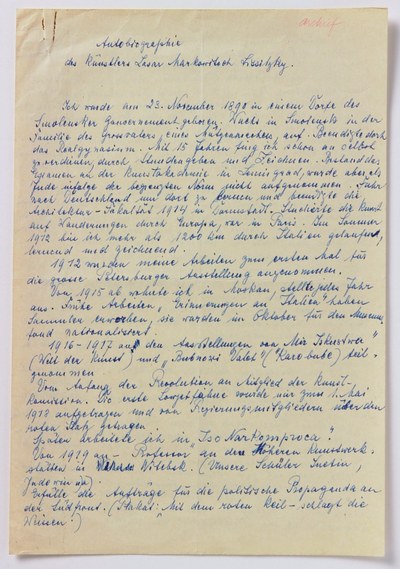 Archiv
Autobiographie
des Künstlers Lasar Markowitsch Lissitzky.
Ich wurde am 23. November 1890 in einem Dorfe des
Smolensker Gouvernement geboren. Wuchs in Smolensk in der
Familie des Grossvaters, eines Mützenmachers, auf. Beendigte dort
das Realgymnasium. Mit 15 Jahren fing ich schon an selbst
zu verdienen, durch Stundengeben und Zeichnen. Bestand das
Examen an der Kunstakademie in Leningrad, wurde aber als
Jude infolge der begrenzten Norm nicht aufgenommen. Fuhr
nach Deutschland um dort zu lernen und beendigte die
Architektur-Fakultät 1914 in Darmstadt. Studierte die Kunst
auf Wanderungen durch Europa, war in Paris. Im Sommer
1912 bin ich mehr als 1200 km durch Italien gelaufen,
lernend und zeichnend.
1912 wurden meine Arbeiten zum ersten Mal für
die grosse Petersburger Ausstellung angenommen.
Von 1915 ab wohnte ich in Moskau, stellte jedes Jahr
aus. Meine Arbeiten, "Erinnerungen an Italien" haben
Sammler erworben, sie wurden im Oktober für den Museum
fond nationalisiert.
1916-1917 an den Ausstellungen von "Mir Iskustwo"
(Welt der Kunst) und "Bubnowi Valet" (Karobube) teil-
genommen
Vom Anfang der Revolution an Mitglied der Kunst-
komission. Die erste Sowjetfahne wurde mir zum 1. Mai
1918 aufgetragen und von Regierungsmitgliedern über den
roten Platz getragen.
Später arbeitete ich in "Iso Narkomproca".
Von 1919 an - Professor an den Höheren Kunstwerk-
stätten in Witebsk. (Unsere Schüler Suetin,
Judowin ua)
Erfülle die Aufträge für die politische Propaganda an
der Südfront. (Plakat: Mit dem roten Keil - schlagt die
Weissen!)